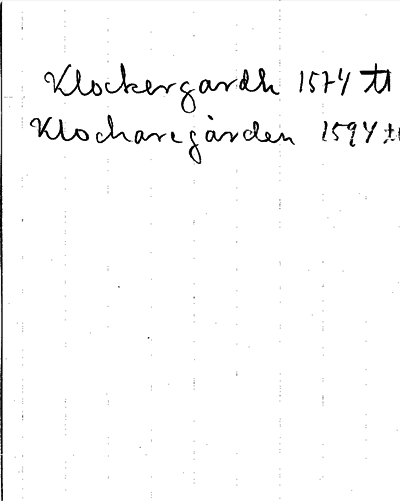 Klockergardh 1574 tt
Klockaregården 1594 tt